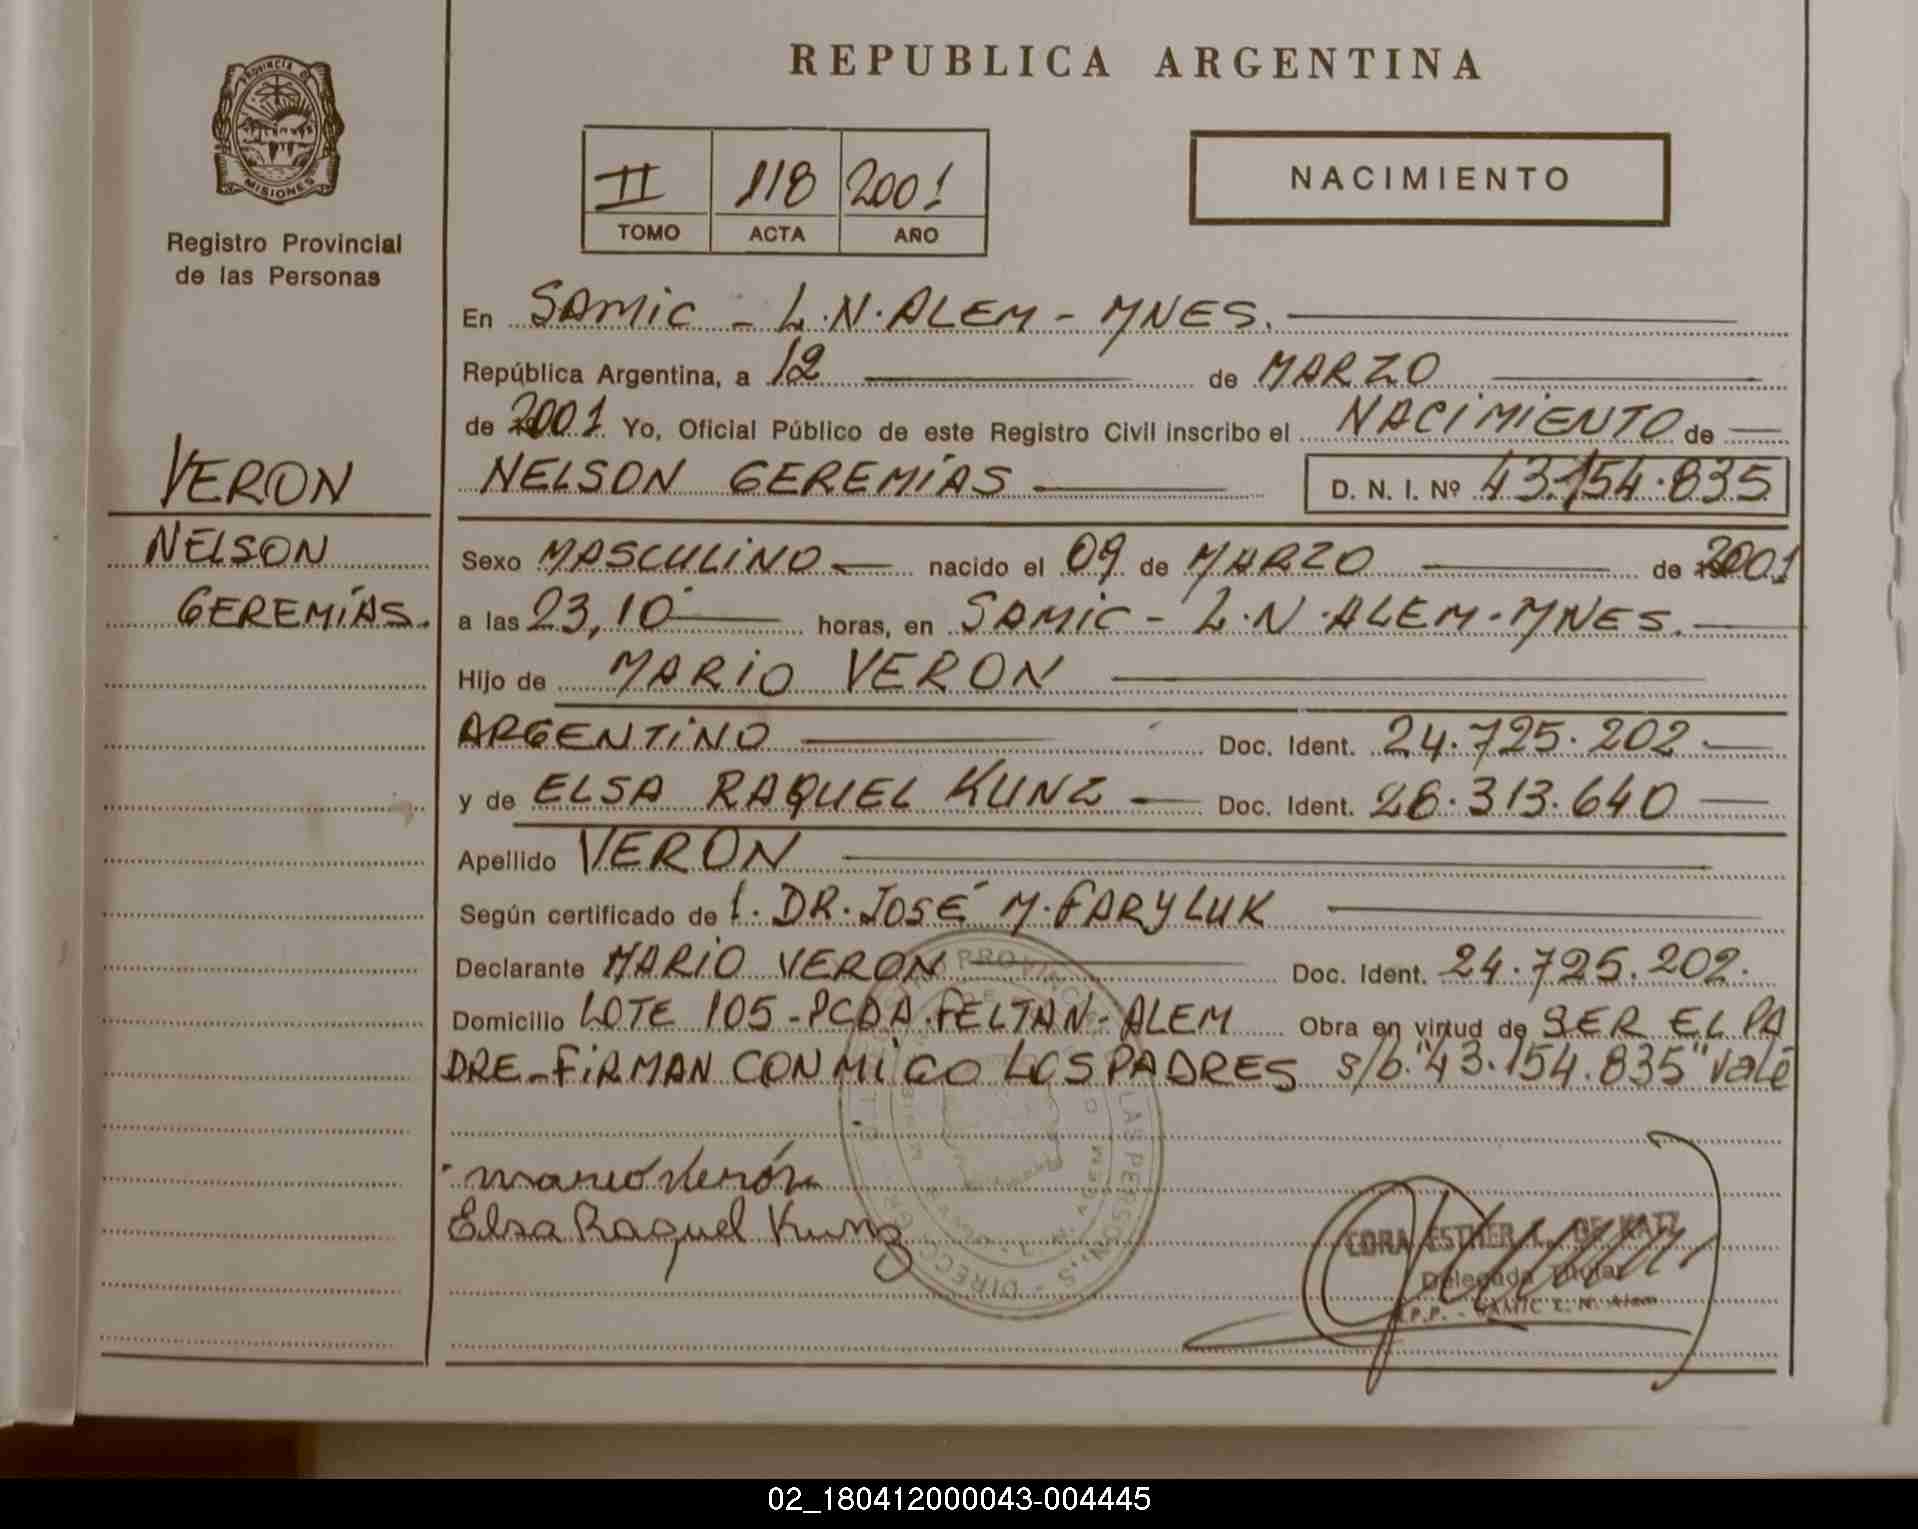 REPUBLICA ARGENTINA
PROVINCIA DE
MISIONES
Registro Provincial
de las Personas
II 118 2001
TOMO ACTA AÑO
NACIMIENTO
En SAMIC - L.N.ALEM - MNES.
República Argentina, a 12 de MARZO
de 2001 Yo, Oficial Público de este Registro Civil inscribo el NACIMIENTO de
NELSON GEREMÍAS D. N. I. Nº 43.154.835
VERON
NELSON
GEREMÍAS.
Sexo MASCULINO nacido el 09 de MARZO de 2001
a las 23,10 horas, en SAMIC - L.N.ALEM - MNES.
Hijo de MARIO VERON
ARGENTINO Doc. Ident. 24.725.202
y de ELSA RAQUEL KUNZ Doc. Ident. 28.313.640
Apellido VERON
Según certificado de 1. DR. JOSÉ M. FARYLUK
Declarante MARIO VERON Doc. Ident. 24.725.202.
Domicilio LOTE 105 - PCDA. BELTAN - ALEM Obra en virtud de SER EL PA
DRE - FIRMAN CONMIGO LOS PADRES s/b. "43.154.835" vale
mario verón
Elsa Raquel Kunz
CORA ESTHER L. DE KATZ
Delegada Titular
R.P.P. - SAMIC L. N. Alem
02_180412000043-004445